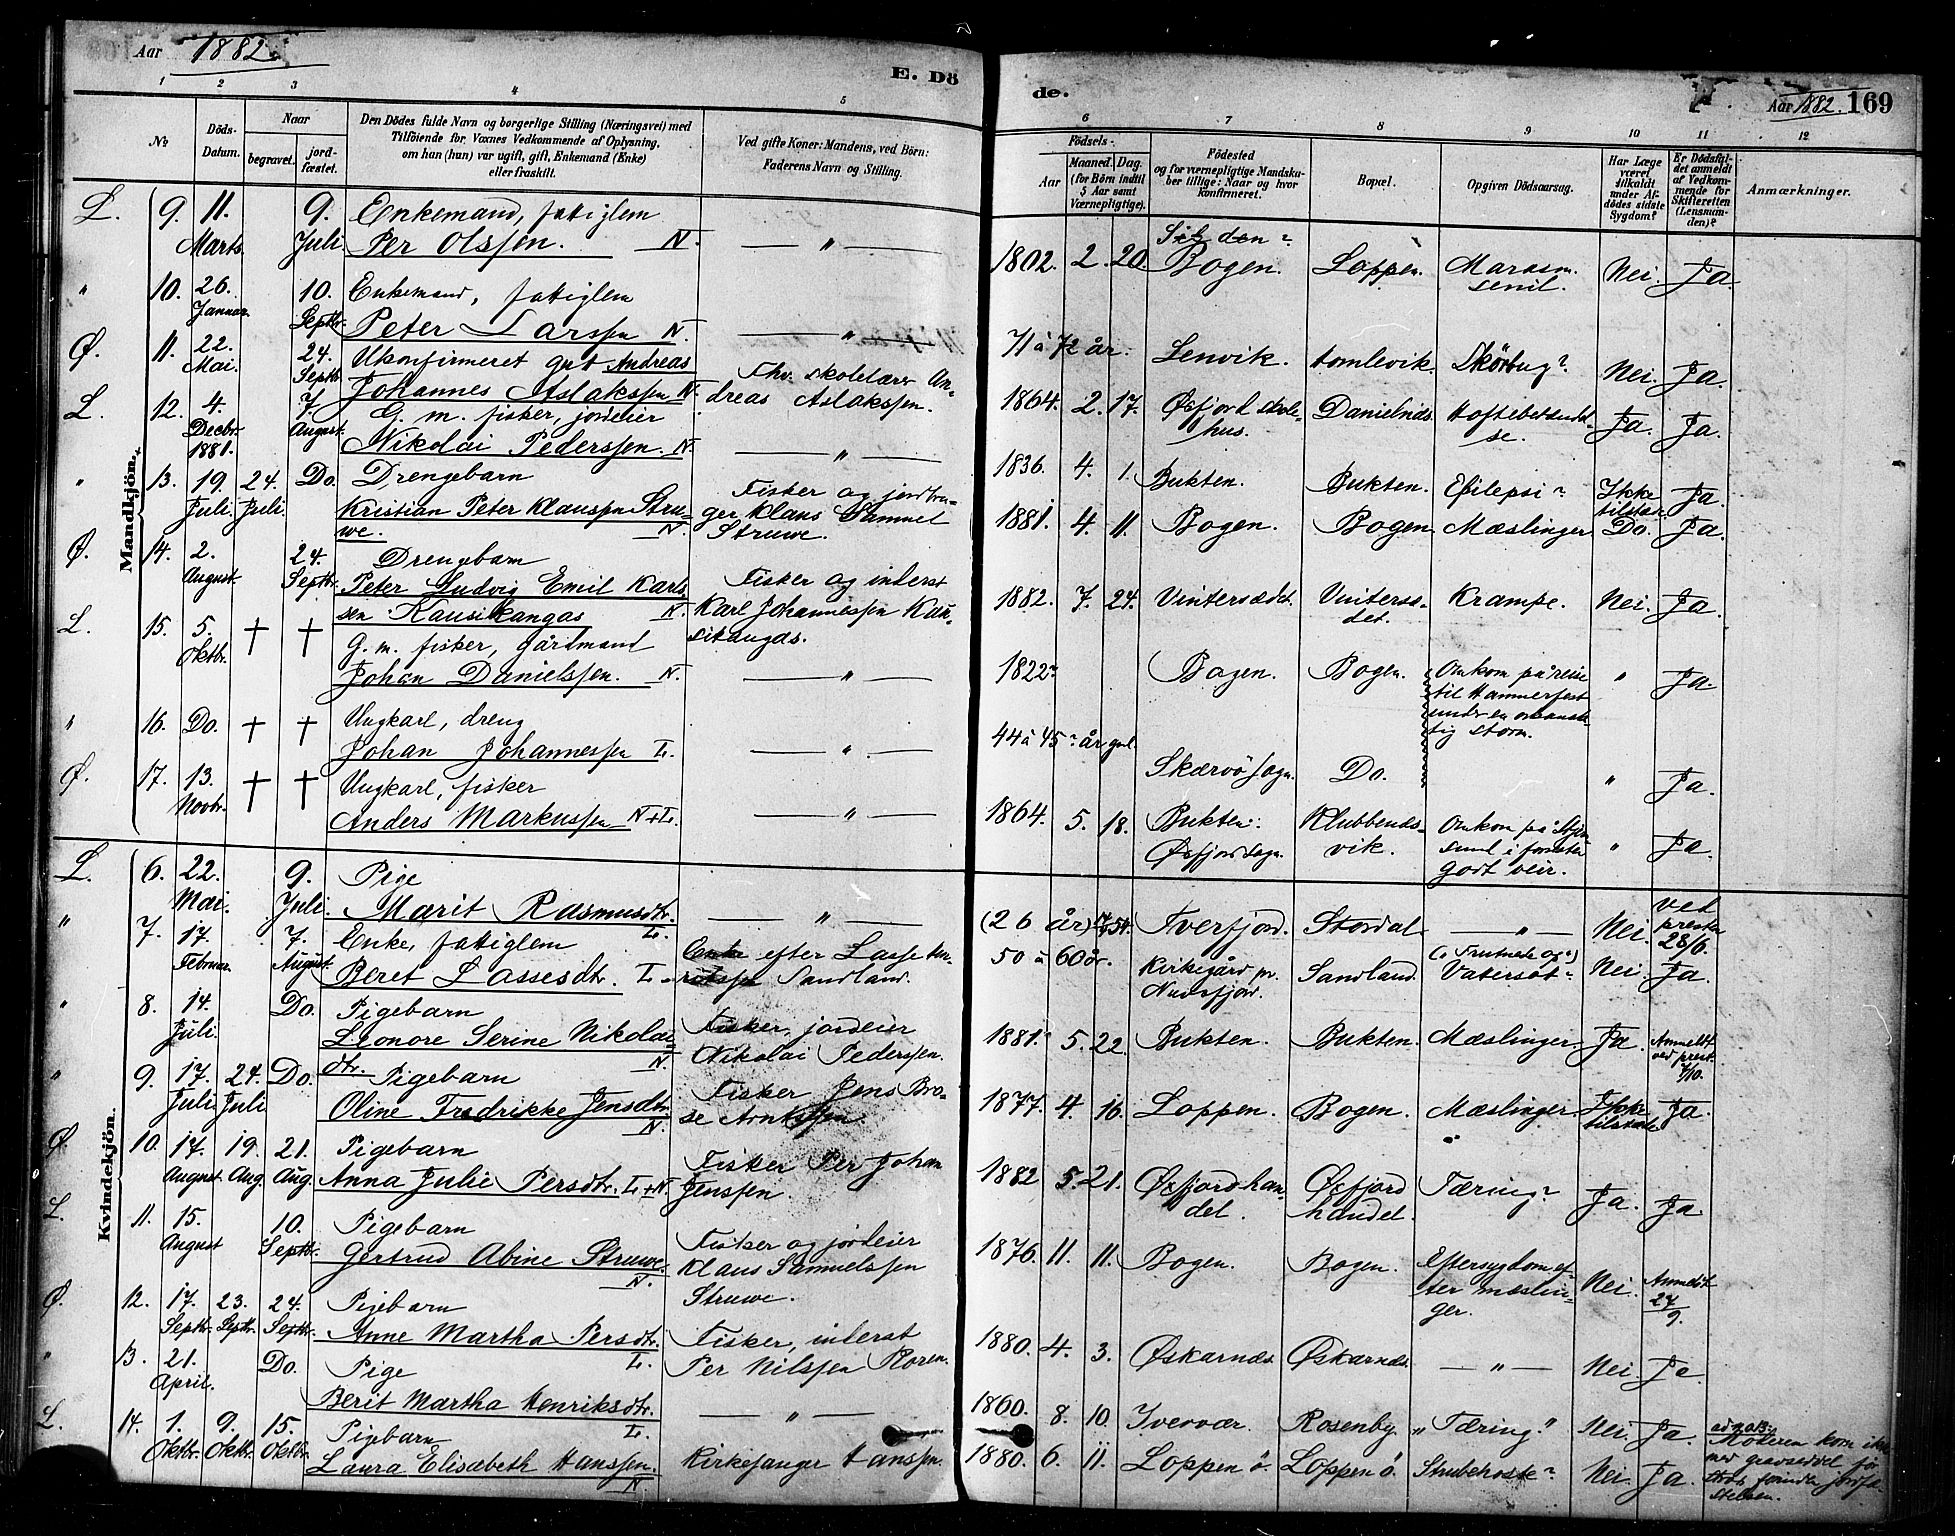 Aar 1882.
E. Dö
de.
Aar 1882. 169
1 2 3 4 5 6 7 8 9 10 11 12
No
Döds-Datum.
Naar
begravet.
jord-fæstet.
Den Dödes fulde Navn og borgerlige Stilling (Næringsvei) med
Tilföiende for Voxnes Vedkommende af Oplysning,
om han (hun) var ugift, gift, Enkemand (Enke)
eller fraskilt.
Ved gifte Koner: Mandens, ved Börn:
Faderens Navn og Stilling.
Födsels-
Aar
Maaned. Dag.
(for Börn indtil
5 Aar samt
Værnepligtige).
Födested
og for værnepligtige Mandska-
ber tillige: Naar og hvor
konfirmeret.
Bopæl.
Opgiven Dödsaarsag.
Har Læge
været
tilkaldt
under Af-
dödes sidste
Sygdom?
Er Dödsfal-
det anmeldt
af Vedkom-
mende for
Skifteretten
(Lensman-
den)?
Anmærkninger.
Mandkjön.
L. 9. 11. Marts 9. Juli Enkemand, fattiglem
Per Olssen. N. — " —
1802. 2. 20. Bogen. Loppen. Marasm. senil. Nei. Ja.
" 10. 26. Januar. 10. Septbr. Enkemand, fattiglem
Peter Larssen N. — " —
71 à 72 år. Lenvik. Skörbug? Nei. Ja.
Ø. 11. 22. Mai. 24. Septb. Ukonfirmeret gut Andreas
Johannes Aslakssen N.
Fhv. skolelærer An-
dreas Aslakssen.
1864. 2. 17. Øxfjord skole-
hus. Ja. Ja.
L. 12. 4. Decbr. 1881. 7. August. G. m. fisker, jordeier
Nikolai Pederssen. N. — " —
1836. 4. 1. Bukten. Bukten. Epilepsi? Ikke Ja.
" 13. 19. Juli. 24. Juli. Do. Drengebarn
Kristian Peter Klaussen Stru-
we. N.
Fisker og jordbru-
ger Klaus Samuel
Struwe.
1881. 4. 11. Bogen. Bogen. Mæslinger. Do. Ja.
Ø. 14. 2. August. 24. Septbr. Drengebarn
Peter Ludvig Emil Karls-
sen Kausikangas N.
Fisker og inderst
Karl Johannessen Kau-
sikangas.
1882. 7. 24. Vintersædet. Vinterså-
det. Krampe. Nei. Ja.
L. 15. 5. Oktbr. † † G. m. fisker, gårdmand
Johan Danielssen. N. — " —
1822? Bogen. Bogen. Omkom på reise
til Hammerfest
under en
tig storm. " Ja.
" 16. Do. † † Ungkarl, dreng
Johan Johannessen L. — " —
44 à 45? år gml. Skærvö sogn. Do. " Ja.
Ø. 17. 13. Novbr. † † Ungkarl, fisker
Anders Markussen N+L. — " —
1864. 5. 18. Bukten:
Øxfjord sogn. Klubbends-
vik. Omkom på
sund i forresten
godt veir. " Ja.
Kvindekjön.
L. 6. 22. Mai. 9. Juli. Pige
Marit Rasmusdtr. L. — " —
(26 år) Tverfjord. Stordal. — " — Nei. ved
presten
28/6.
" 7. 17. Februar. 7. August. Enke, fattiglem
Beret Lassesdtr. L.
Enke efter Lasse
Sandland.
50 à 60 år. Kirkegård pr.
Nuvsfjord. Sandland. Vatersot? Nei. Ja.
" 8. 14. Juli. Do. Pigebarn
Leonore Serine Nikolai-
dtr. N.
Fisker, jordeier
Nikolai Pederssen.
1881. 5. 22. Bukten. Bukten. Mæslinger. Ja. Anmeldt
ved prest.
7/10.
" 9. 17. Juli 24. Juli Do. Pigebarn
Oline Fredrikke Jensdtr.
N.
Fisker Jens Bro-
se
1877. 4. 16. Loppen. Bogen. Mæslinger. Ikke
tilstede Ja.
Ø. 10. 17. August. 19. Aug. 21. Aug. Pigebarn
Anna Julie Persdtr. L+N.
Fisker Per Johan
Jenssen.
1882 5. 21. Øxfjord han-
del. Øxfjord
handel. Tæring? Ja. Ja.
L. 11. 15. August 10. Septbr. Pigebarn
Gertrud Abine Struwe.
N.
Fisker og jordeier
Klaus Samuelssen
Struwe.
1876. 11. 11. Bogen. Bogen. Eftersygdom ef-
ter mæslin-
ger. Nei. Anmeldt
27/9.
Ø. 12. 17. Septbr. 23. Septbr. 24. Septbr. Pigebarn
Anne Martha Persdtr.
L.
Fisker, inderst
Per Nilssen Roren.
1880. 4. 3. Øskarnæs. Øskarnæs. — " — Nei. Ja.
" 13. 21. April. Do. Pige
Berit Martha Henriksdtr.
L. — " —
1860. 8. 10. Rosenby. "Tæring." Nei. Ja.
L. 14. 1. Oktbr. 9. Oktbr. 15. Oktbr. Pigebarn
Laura Elisabeth Hanssen.
N.
Kirkesanger Hanssen.
1880. 6. 11. Loppen ö. Loppen ö. Strubehoste? Nei. Ja.